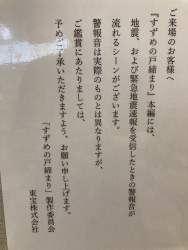 ご来場のお客様へ
『すずめの戸締まり』本編には、
地震、および緊急地震速報を受信したときの警報音が
流れるシーンがございます。
警報音は実際のものとは異なりますが、
ご鑑賞にあたりましては、
予めご了承いただきますよう、お願い申し上げます。
「すずめの戸締まり」製作委員会
東宝株式会社